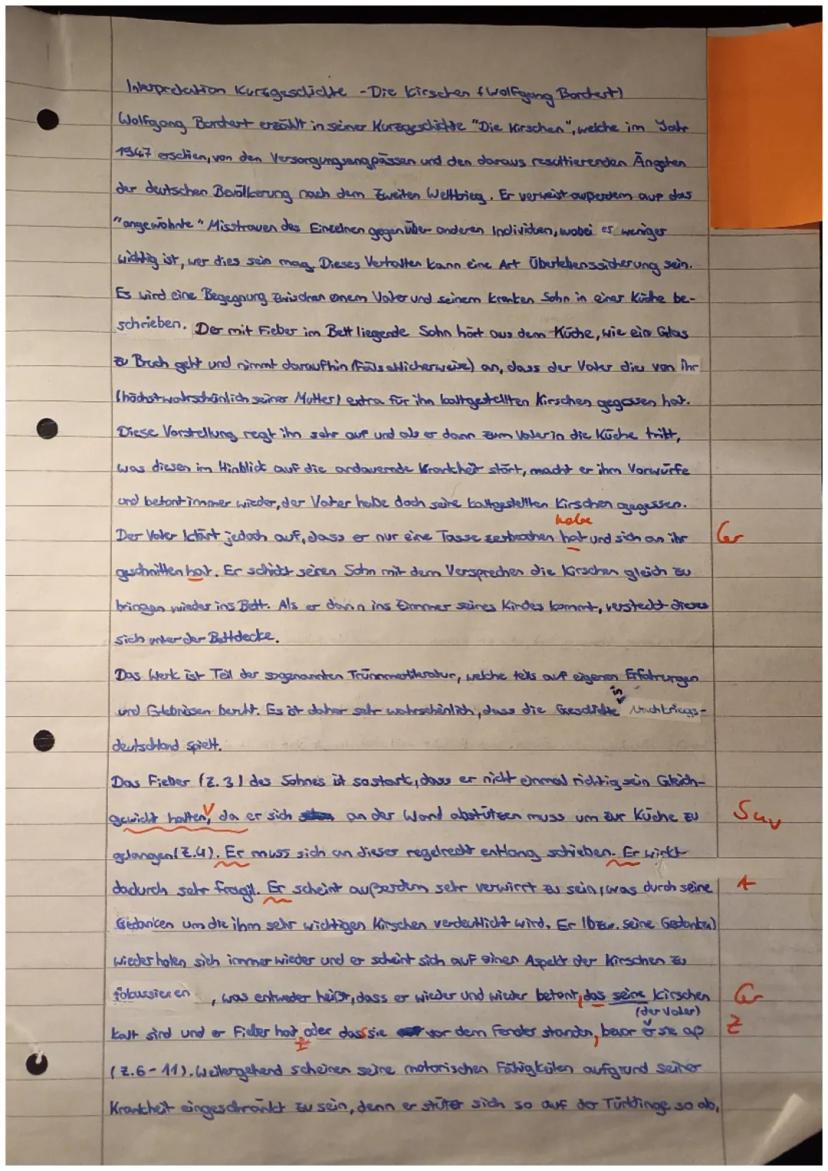 Interpretation Kurzgeschichte - Die Kirschen (Wolfgang Borchert)
Wolfgang Borchert erzählt in seiner Kurzgeschichte "Die Kirschen", welche im Jahr
1947 erschien, von den Versorgungsengpässen und den daraus resultierenden Ängsten
der deutschen Bevölkerung nach dem Zweiten Weltkrieg. Er verweist außerdem auf das
"angewöhnte" Misstrauen des Einzelnen gegenüber anderen Individuen, wobei es weniger
wichtig ist, wer dies sein mag. Dieses Verhalten kann eine Art Überlebenssicherung sein.
Es wird eine Begegnung zwischen einem Vater und seinem kranken Sohn in einer Küche be-
schrieben. Der mit Fieber im Bett liegende Sohn hört aus dem Küche, wie ein Glas
zu Bruch geht und nimmt daraufhin (fälschlicherweise) an, dass der Vater die von ihr
(höchstwahrschänlich seiner Mutter) extra für ihn kaltgestellten Kirschen gegessen hat.
Diese Vorstellung regt ihn sehr auf und als er dann zum Vater in die Küche tritt,
was diesen im Hinblick auf die andauernde Krankheit stört, macht er ihm Vorwürfe
und betont immer wieder, der Vater habe doch seine kaltgestellten Kirschen gegessen.
habe
Der Vater klärt jedoch auf, dass er nur eine Tasse zerbrochen hat und sich an ihr Gr
geschnitten hat. Er schickt seinen Sohn mit dem Versprechen die Kirschen gleich zu
bringen wieder ins Bett. Als er dann ins Zimmer seines Kindes kommt, versteckt dieses
sich unter der Bettdecke.
Das Werk ist Teil der sogenannten Trümmerliteratur, welche teils auf eigenen Erfahrungen
und Erlebnissen beruht. Es ist daher sehr wahrscheinlich, dass die Geschichte in Nachkriegs-
deutschland spielt.
Das Fieber (Z.3) des Sohnes ist so stark, dass er nicht einmal richtig sein Gleich-
gewicht halten, da er sich an der Wand abstützen muss um zur Küche zu
gelangen (Z.4). Er muss sich an dieser regelrecht entlang schieben. Er wirkt
dadurch sehr fragil. Er scheint außerdem sehr verwirrt zu sein, was durch seine A
Gedanken um die ihm sehr wichtigen Kirschen verdeutlicht wird. Er (bzw. seine Gedanken)
wiederholen sich immer wieder und er scheint sich auf einen Aspekt der Kirschen zu
fokussieren, was entweder heißt, dass er wieder und wieder betont, das seine Kirschen Gr
(der Vater)
kalt sind und er Fieber hat oder dass sie vor dem Fenster standen, bevor er sie aß Z
(Z.6-11). Weitergehend scheinen seine motorischen Fähigkeiten aufgrund seiner
Krankheit eingeschränkt zu sein, denn er stützt sich so auf der Türklinge so ab,